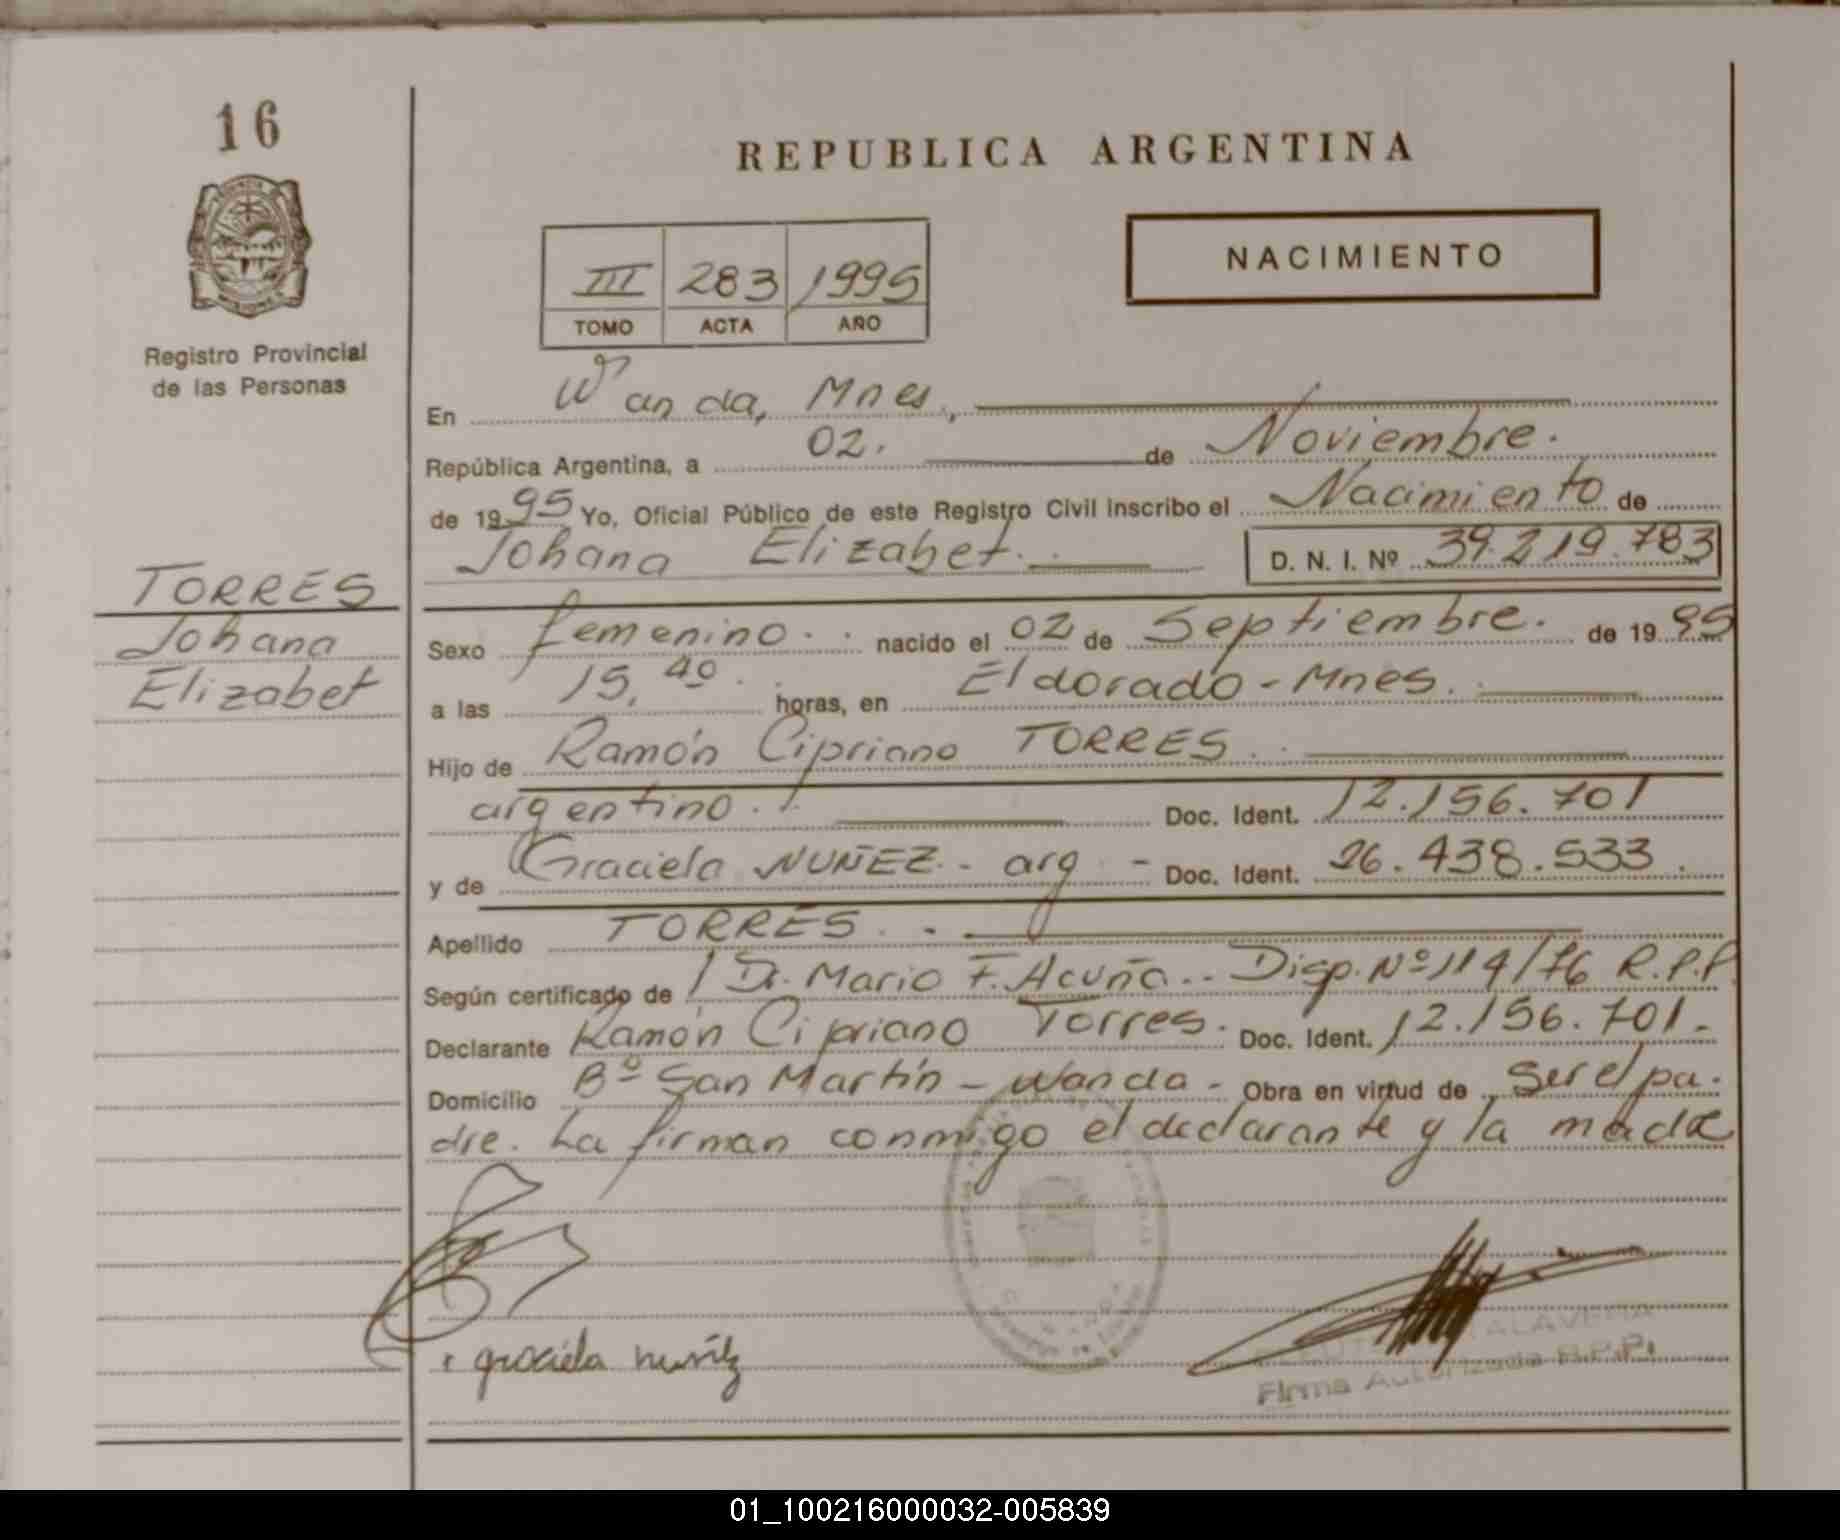 16
REPUBLICA ARGENTINA
NACIMIENTO
III 283 1995
TOMO ACTA AÑO
Registro Provincial
de las Personas
En Wanda, Mnes.,
República Argentina, a 02. de Noviembre.
de 1995 Yo, Oficial Público de este Registro Civil inscribo el Nacimiento de
Johana Elizabet. D. N. I. Nº 39.219.783
TORRES
Johana
Elizabet
Sexo femenino.. nacido el 02 de Septiembre. de 1995
a las 15,40. horas, en Eldorado - Mnes.
Hijo de Ramón Cipriano TORRES.
argentino. Doc. Ident. 12.156.701
y de Graciela NUÑEZ.- arg.- Doc. Ident. 26.438.533.
Apellido TORRES. -
Según certificado de Dr. Mario F. Acuña.. Disp. Nº 114/76 R.P.P.
Declarante Ramón Cipriano Torres. Doc. Ident. 12.156.701.
Domicilio Bº San Martín - Wanda - Obra en virtud de ser el pa-
dre. La firman conmigo el declarante y la madre
graciela nuñez
TALAVERA
Firma Autorizada R.P.P.
01_100216000032-005839